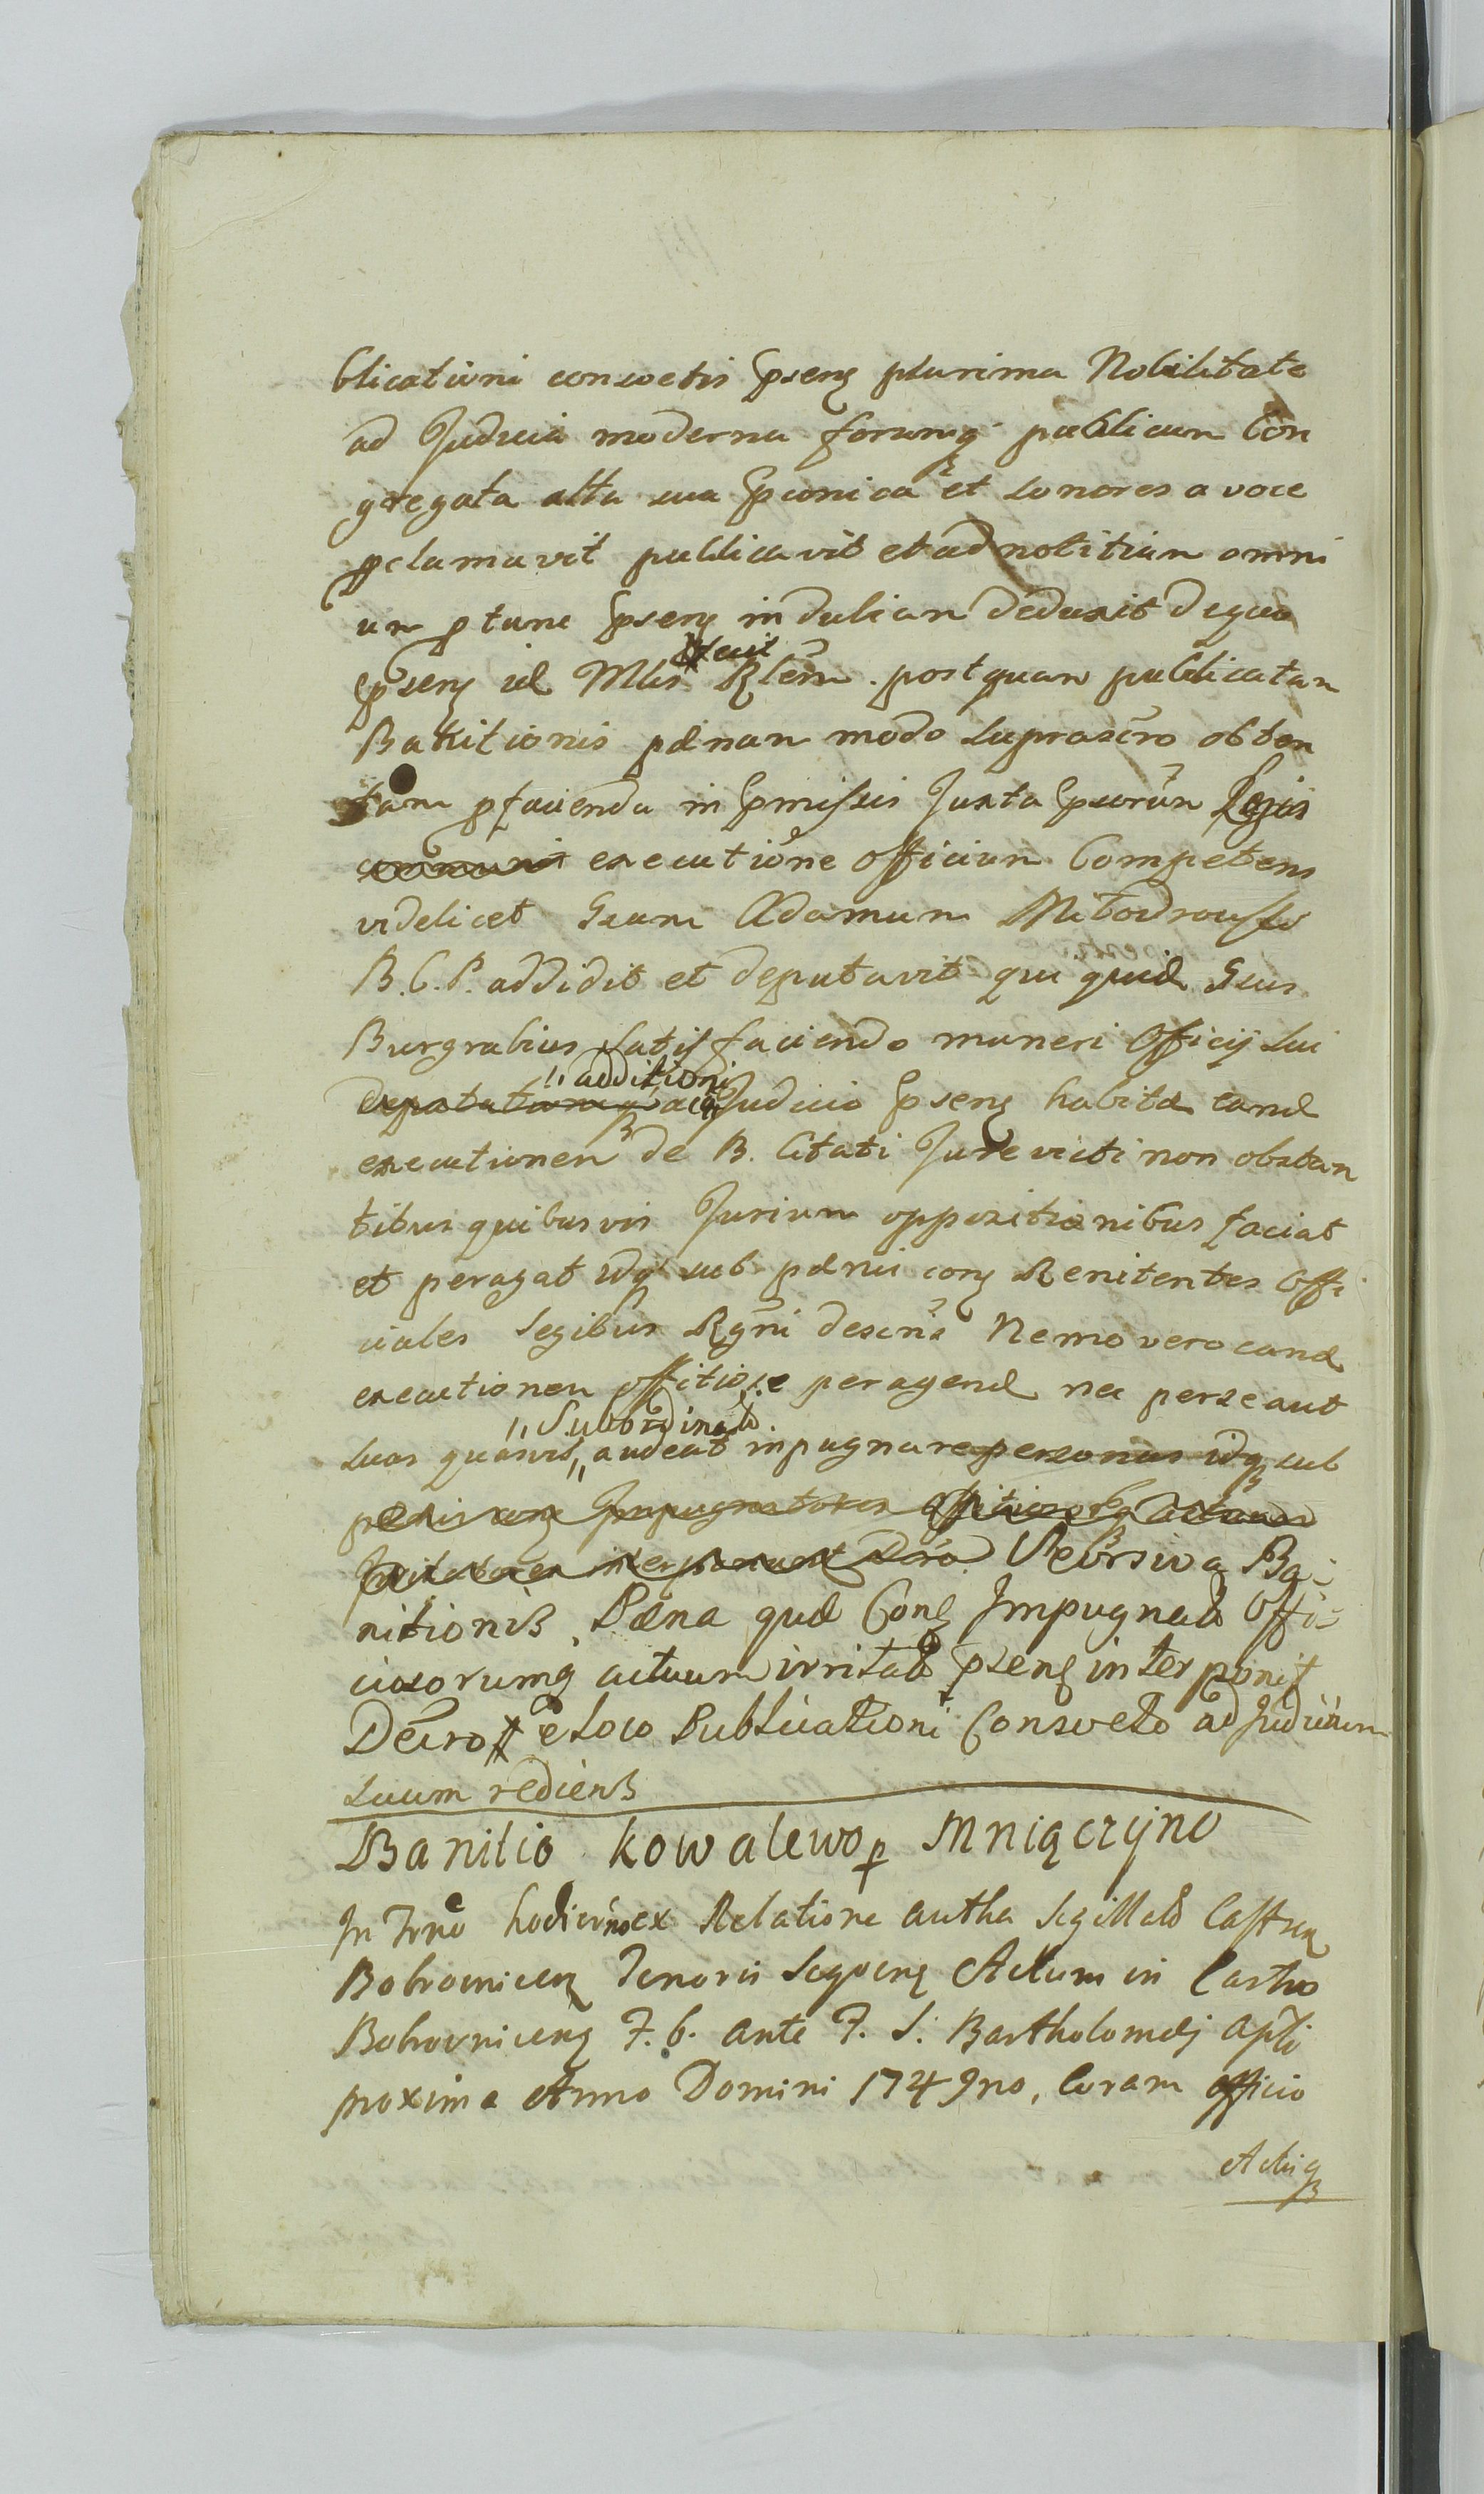 blicationi consuetis pseng plurima Nobilitate
ad Judicia moderna forumq publicum Con
gregata alta sua et sonorosa voce
pclamavit publicavit et ad notitiam omni
um ptunc pseng in dubiam deduxit de qua
pseng id Mlis fecit Rlem. postquam publicatam
Banitionis pænam modo suprascro obten
tam p facienda in pmissis Juxta psorum Legis
executione officium Competens
videlicet Gsum Adamum
B. C. P. addidit et deputavit qui quid Gsus
Burgrabius satisfaciendo muneri Officij sui
additioni Judicio pseng habita eand
executionem de B. Citati Jure victi non obstan
tibus quibusvis Jurium oppositionibus faciat
et peragat idq sub pænis cong Renitentes Offi
ciales legibus Rgni descris Nemo vero eand
executionem offitiose peragend nec per se aut
suas quasvis, Subordinat. audeat inpugnare personas idq sub
pænis cong Impugnatores
Reorsiva Ba-
nitionis, Pæna qud Cong Impugnat Offi-
ciosorumq actuum irritat pseng interponit
Decro e loco Publicationi Consveto ad Judicium
suum rediens
Banitio Kowalewo p Mniączyno
In Trno hodierno ex Relatione autha Sigillato Castren
Bobrownicen Tenoris sequeng Actum in Castro
Bobrowniceng F. 6. ante F. S. Bartholomæj Apli
proxima Anno Domini 1749no, Coram officio
Actisq